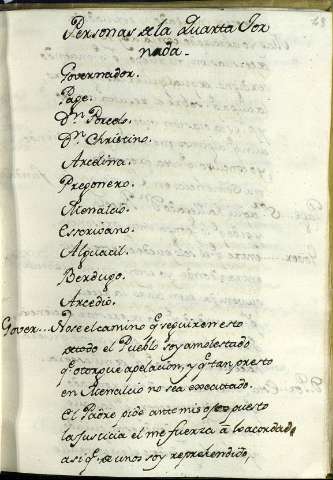 Personas de la Quarta Jor
nada.
Governador.
Page.
Dn. Porcels.
Dn. Christino.
Arcelina.
Pregonero.
Menalcio.
Escrivano.
Alguacil.
Berdugo.
Arcedio.
Gover... No se el camino q seguire en esto
todo el Pueblo soy amolestado
q otorgue apelacion, y q tan presto
en Menalcio no sea executado.
El Padre pide ante mis opuesto
la justicia el me fuerza a lo acordado
asi q de unos soy reprehendido,